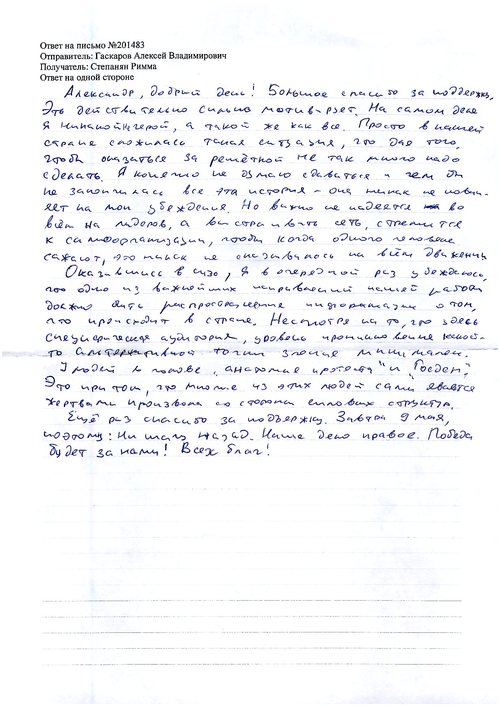 Ответ на письмо №201483
Отправитель: Гаскаров Алексей Владимирович
Получатель: Степанян Римма
Ответ на одной стороне
Александр, добрый день! Большое спасибо за поддержку,
Это действительно сильно мотивирует. На самом деле
я никакой не герой, а такой же как все. Просто в нашей
стране сложилась такая ситуация, что для того,
чтобы оказаться за решёткой не так много надо
сделать. Я конечно не думаю сдаваться и чем бы
не закончилась вся эта история - она никак не повли-
яет на мои убеждения. Но важно не надеяться во
всём на лидоров, а выстраивать сеть, стремится
к самоорганизации, чтобы когда одного человека
сажают, это никак не сказывалось на всём движении
Оказавшись в сизо, я в очередной раз убеждаюсь,
что одно из важнейших направлений нашей работы
должно быть распространение информации о том,
что происходит в стране. Несмотря на то, что здесь
специфическая аудитория, уровень проникновения какой-
то альтернативной точки зрения минимален.
У людей в голове, "анатомия протеста" и "Госдеп".
Это при том, что многие из этих людей сами являются
жертвами произвола со стороны силовых структур.
Ещё раз спасибо за поддержку. Завтра 9 мая,
поэтому: Ни шагу назад. Наше дело правое. Победа
будет за нами! Всех благ!